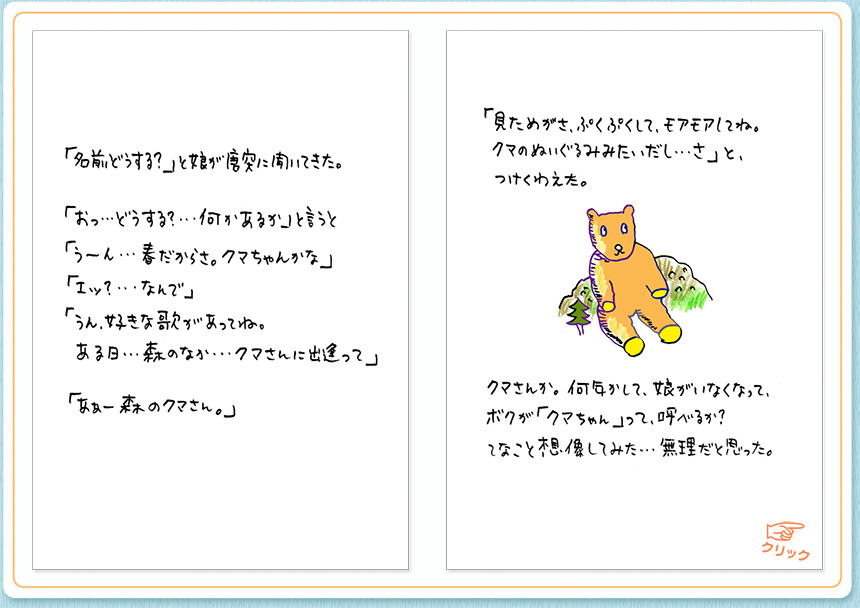 「名前どうする?」と娘が唐突に聞いてきた。
「おっ…どうする?…何かあるか」と言うと
「う〜ん…春だからさ。クマちゃんかな」
「エッ?…なんで」
「うん、好きな歌があってね。
ある日…森のなか…クマさんに出逢って」
「あぁー森のクマさん。」
「見ためがさ、ぷくぷくして、モアモアしてね。
クマのぬいぐるみみたいだし…さ」と、
つけくわえた。
クマさんか。何年かして、娘がいなくなって、
ボクが「クマちゃん」って、呼べるか?
てなこと想像してみた…無理だと思った。
クリック